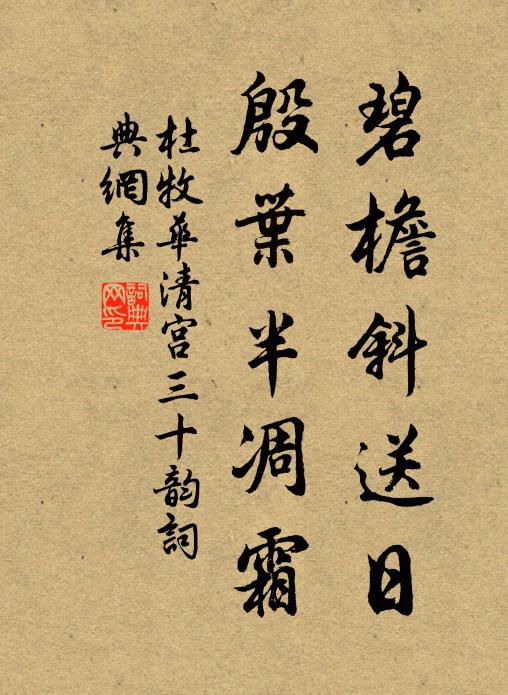 碧檐斜送日
殷葉半凋霜
杜牧華清宮三十韵詞
典網集
詞典網印